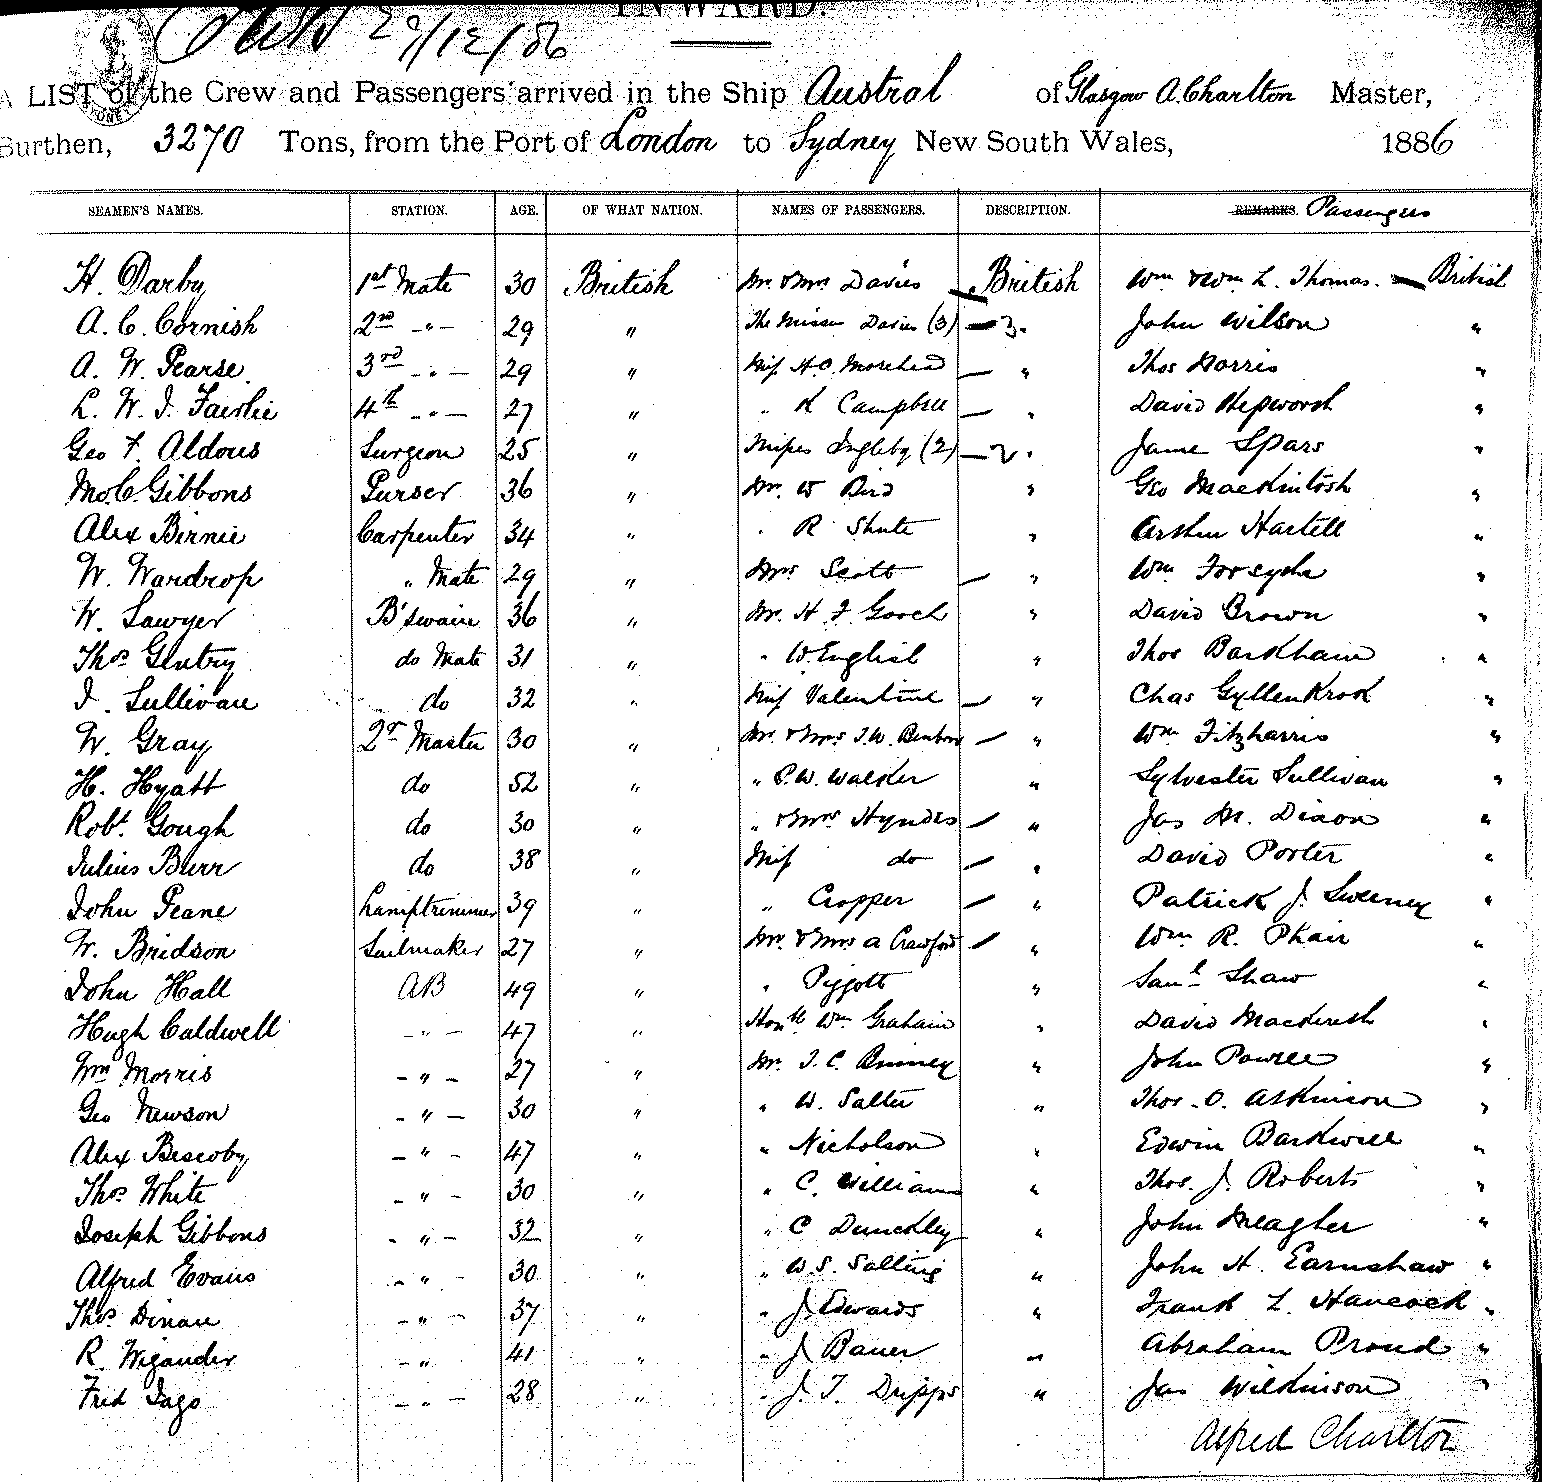 INWARD.
29/12/86
A LIST of the Crew and Passengers arrived in the Ship Austral of Glasgow A. Charlton Master,
Burthen, 3270 Tons, from the Port of London to Sydney New South Wales, 1886
SEAMEN'S NAMES. STATION. AGE. OF WHAT NATION. NAMES OF PASSENGERS. DESCRIPTION. REMARKS. Passengers
H. Darby 1st Mate 30 British Mr. & Mrs Davies — British Wm & Wm L. Thomas. — British
A. C. Cornish 2nd -"- 29 " The Misses Davies (3) — 3. John Wilson "
A. W. Pearse 3rd -"- 29 " Miss H.O. Morehead — " Thos Norris "
L. W. I. Fairlie 4th -"- 27 " " K Campbell — " David Hepworth "
Geo F. Aldous Surgeon 25 " Misses Ingleby (2) — 2. Jame Spars "
Mo. C. Gibbons Purser 36 " Mr. W Bird " Geo Mackintosh "
Alex Birnie Carpenter 34 " " R Shute " Arthur Hartell "
W. Wardrop " Mate 29 " Mrs Scott — " Wm Forsythe "
W. Sawyer B'swain 36 " Mr. H F Gooch " David Brown "
Thos Gentry do Mate 31 " " W. English " Thos Barkham "
J. Sullivan do 32 " Miss Valentine — " Chas Gyllenkrok "
W. Gray 2r Master 30 " Mr. & Mrs J.W. Benbow — " Wm Fitzharris "
H. Hyatt do 52 " " P.W. Walker " Sylvester Sullivan "
Robt. Gough do 30 " " & Mrs Hyndes — " Jas M. Dixon "
Julius Burr do 38 " Miss do — " David Porter "
John Peane Lamptrimmer 39 " " Cropper — " Patrick J. Sweeney "
W. Bridson Sailmaker 27 " Mr. & Mrs A Crawford — " Wm R. Phair "
John Hall AB 49 " " Piggott " Saml Shaw "
Hugh Caldwell -"- 47 " Honble Wm Graham " David Mackereth "
Wm Morris -"- 27 " Mr. J. C. Binney " John Powell "
Geo Newson -"- 30 " " W. Salter " Thos. O. Atkinson "
Alex Bescoby -"- 47 " " Nicholson " Edwin Barkwell "
Thos White -"- 30 " " C. Williams " Thos. J. Roberts "
Joseph Gibbons -"- 32 " " C Dunckley " John Meagher "
Alfred Evans -"- 30 " " W.S. Salting " John H. Earnshaw "
Thos Dinan -"- 37 " " J. Edwards " Frank L. Hancock "
R. Wigander -"- 41 " " J Bauer " Abraham Proud "
Fred Jago -"- 28 " " J. T. Dripps " Jas Wilkinson "
Alfred Charlton